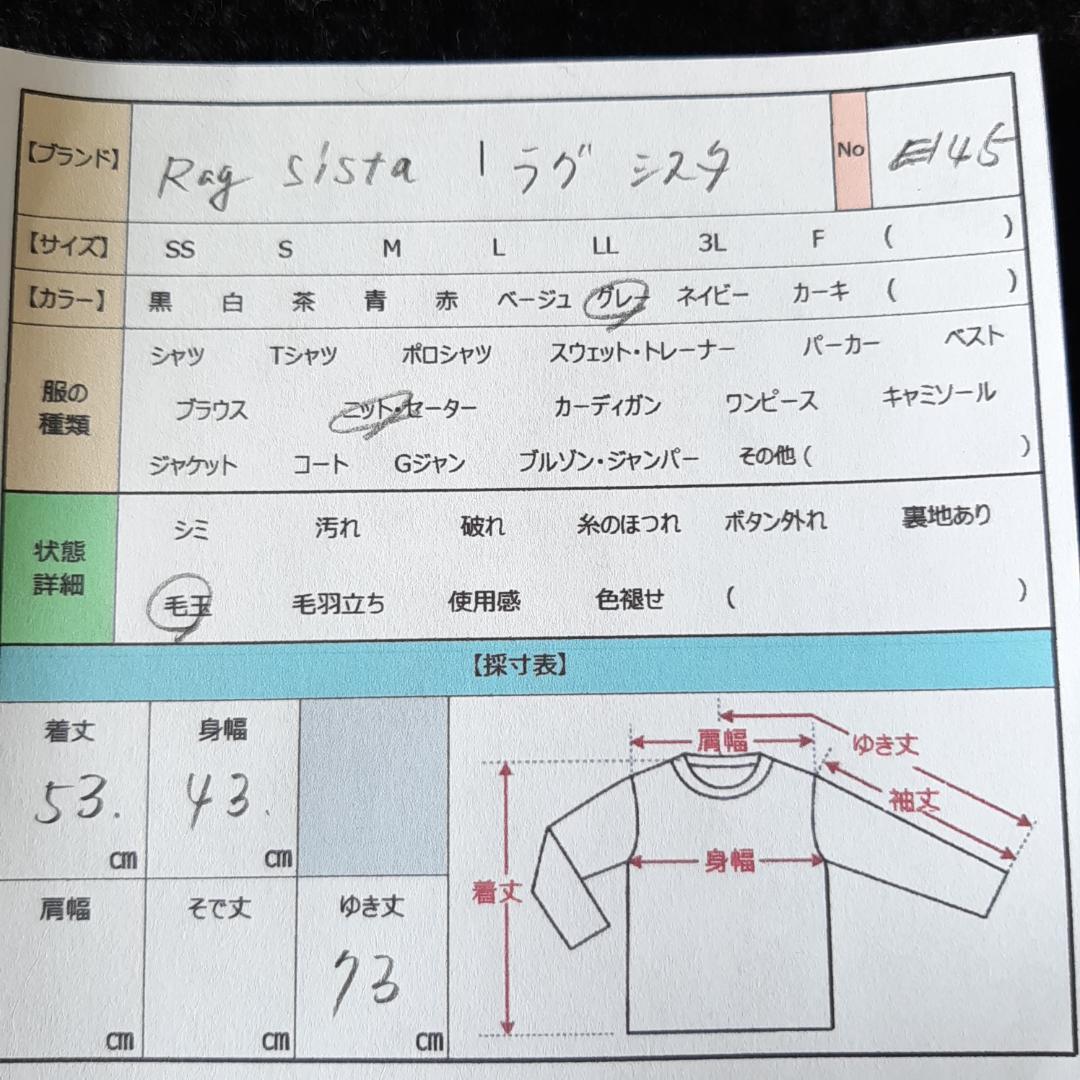 【ブランド】 Rag sista | ラグ シスタ No E145
【サイズ】 SS S M L LL 3L F ( )
【カラー】 黒 白 茶 青 赤 ベージュ グレー ネイビー カーキ ( )
服の種類
シャツ Tシャツ ポロシャツ スウェット・トレーナー パーカー ベスト
ブラウス ニット・セーター カーディガン ワンピース キャミソール
ジャケット コート Gジャン ブルゾン・ジャンパー その他 ( )
状態詳細
シミ 汚れ 破れ 糸のほつれ ボタン外れ 裏地あり
毛玉 毛羽立ち 使用感 色褪せ ( )
【採寸表】
着丈 身幅
53. 43.
cm cm
肩幅 そで丈 ゆき丈
73
cm cm cm
肩幅 ゆき丈
袖丈
身幅
着丈